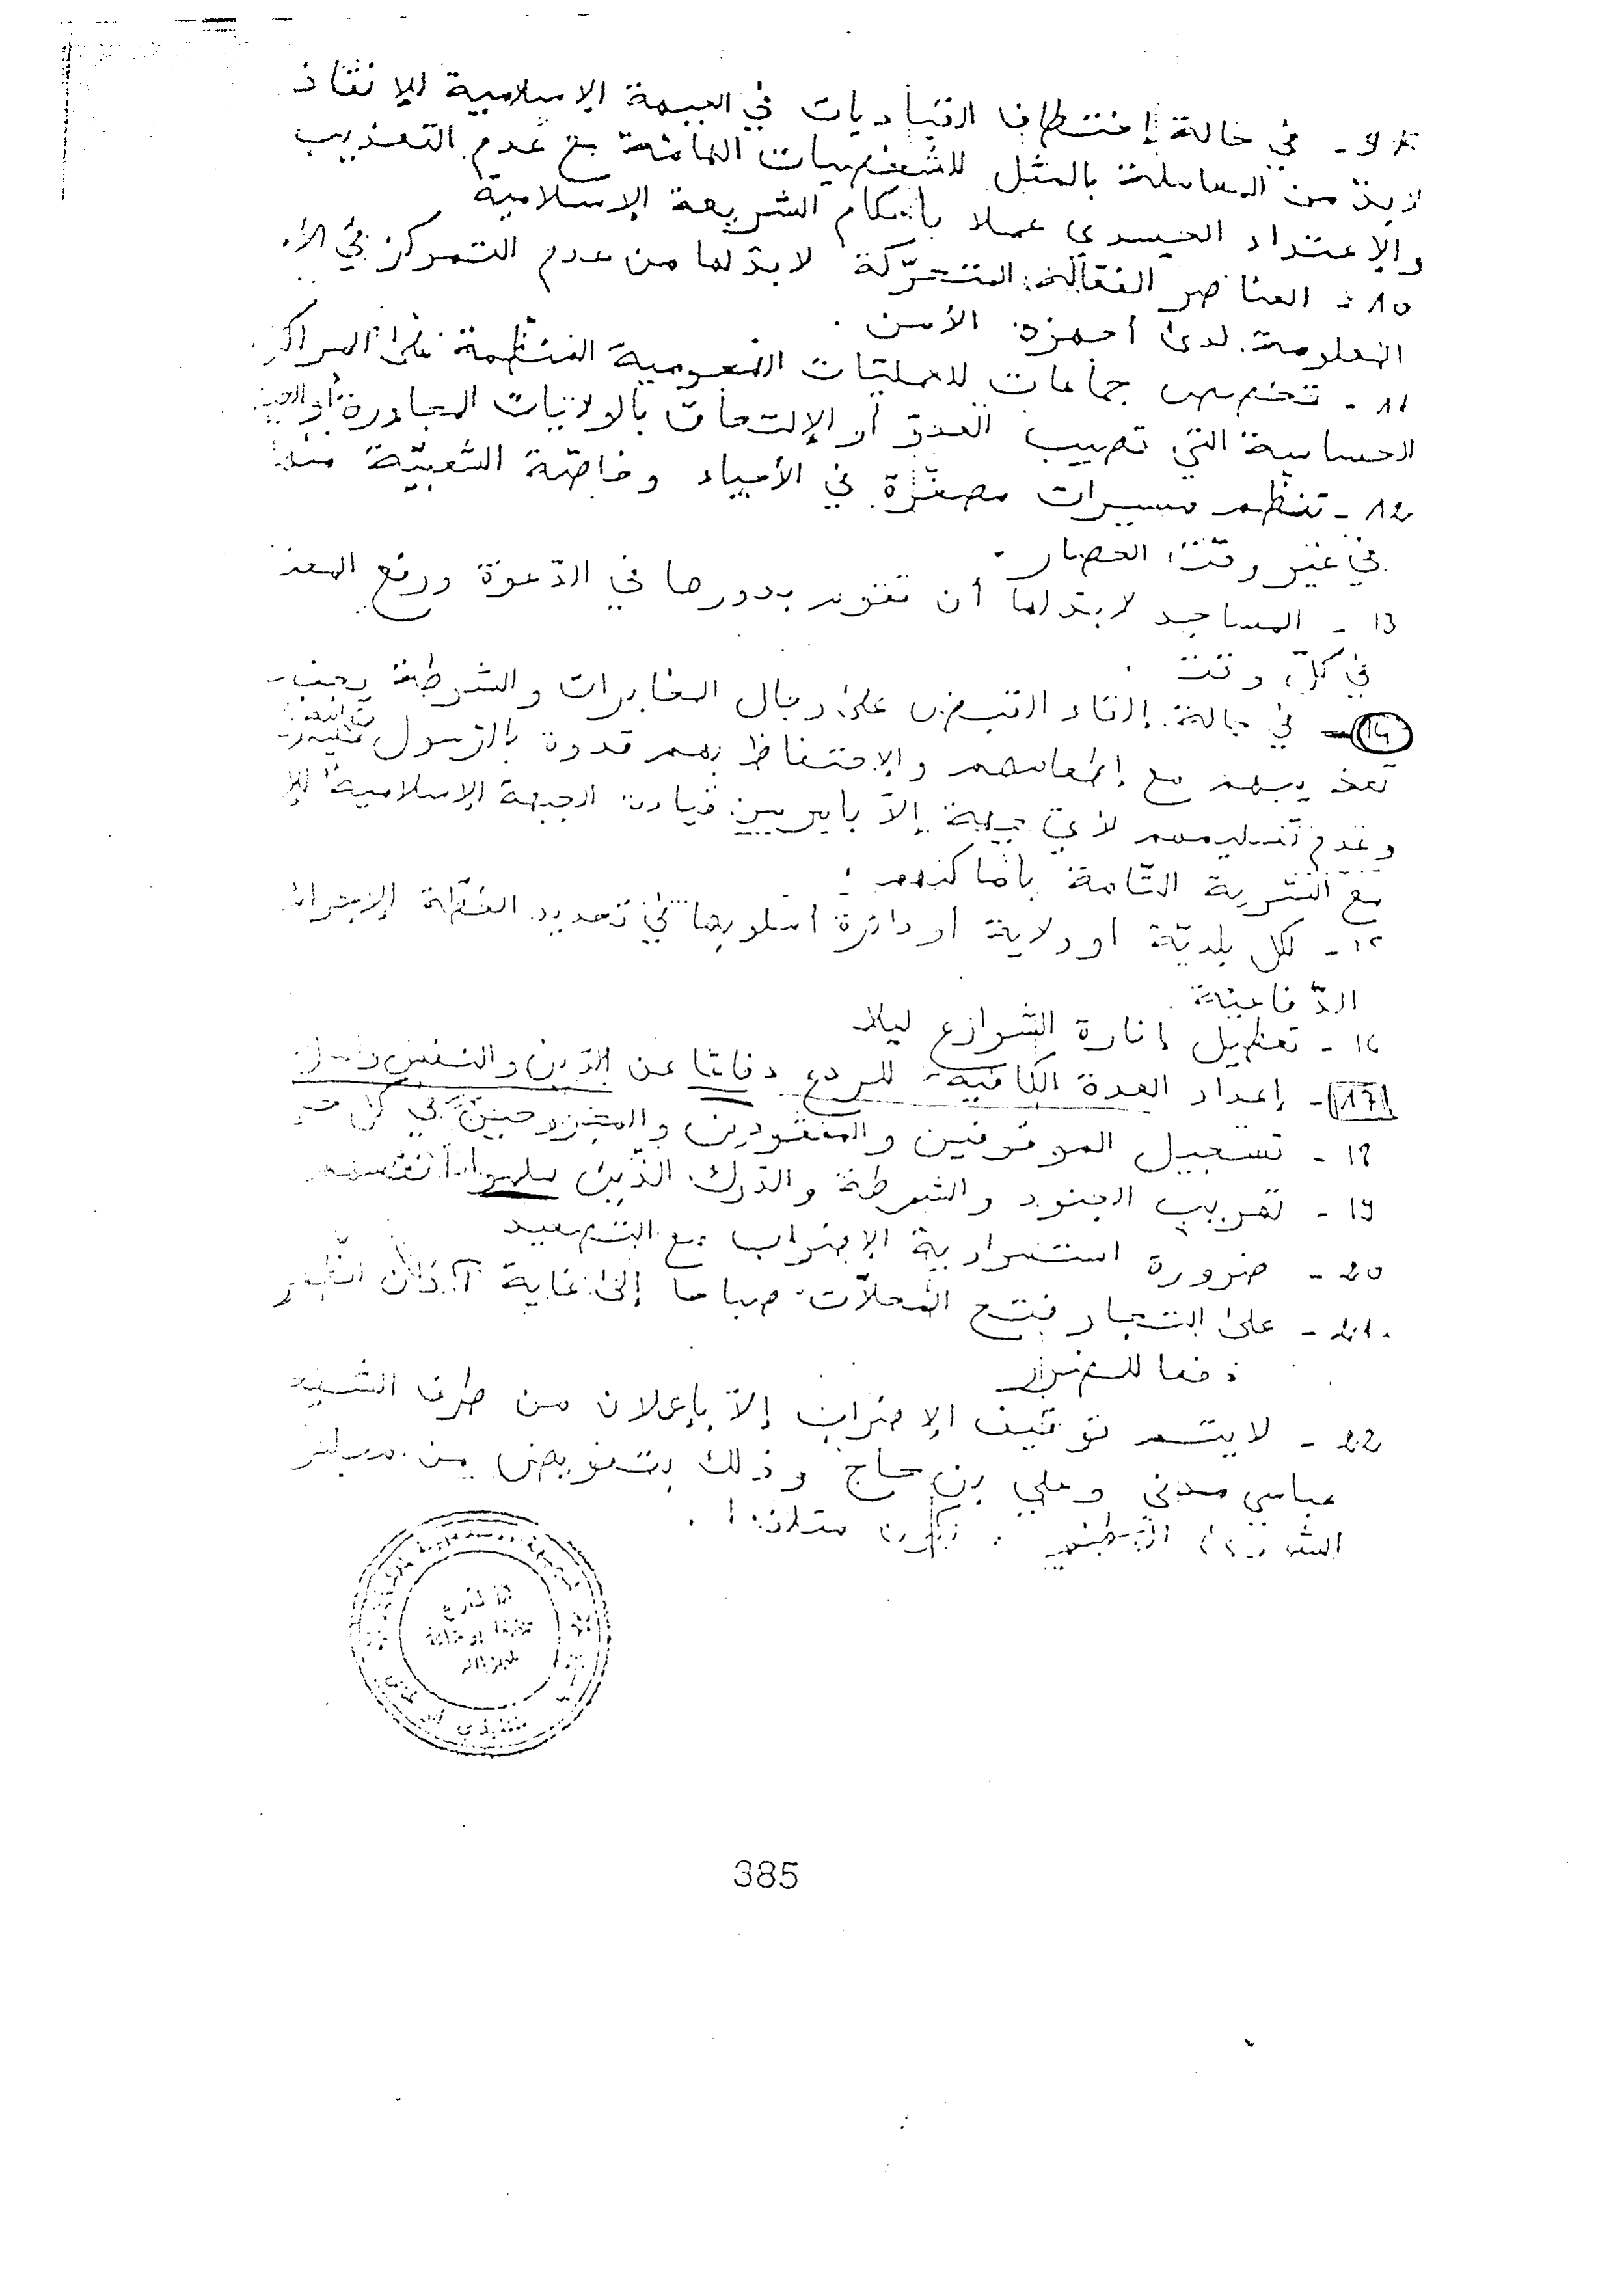 9 - في حالة إختطاف القياديات في الجبهة الإسلامية للإنقاذ
لابدّ من المعاملة بالمثل للشخصيات الهامة مع عدم التعذيب
والإعتداء الجسدي عملا بأحكام الشريعة الإسلامية
10 - العناصر الفعّالة المتحرّكة لابدّ لها من عدم التمركز في
المعلومة لدى أجهزة الأمن .
11 - تخصيص جماعات للعمليّات الهجومية المنظّمة على المراكز
الحساسة التي تصيب العدوّ أو الإلتحاق بالولايات المجاورة أو
12 - تنظيم مسيرات مصغّرة في الأحياء وخاصّة الشعبيّة منها
في غير وقت الحصار .
13 - المساجد لابدّ لها أن تقوم بدورها في الدّعوة ورفع
في كلّ وقت .
14 - في حالة إلقاء القبض على رجال المخابرات والشرطة يجب
تعذيبهم مع إطعامهم والإحتفاظ بهم قدوة بالرّسول
وعدم تسليمهم لأيّ جهة إلاّ قيادة الجبهة الإسلامية
مع السّرية التّامة بأماكنهم :
15 - لكل بلديّة أو ولاية أو دائرة أسلوبها في تحديد الخطّة
الدّفاعيّة
16 - تعطيل إنارة الشوارع ليلا
17 - إعداد العدة الكافية للردع دفاعا عن الدّين والنفس
18 - تسجيل الموقوفين والمفقودين والمجروحين في كل
19 - تهريب الجنود والشرطة والدّرك الذّين سلموا أنفسهم
20 - ضرورة استمرارية الإضراب مع التصعيد
21 - على التجار فتح المحلاّت صباحا إلى غاية آذان الظّهر
دفعا للضرر
22 - لا يتم توقيف الإضراب إلاّ بإعلان من طرف الشيخ
عباسي مدني وعلي بن حاج وذلك بتفويض من مجلس
الشورى الوطني .
385